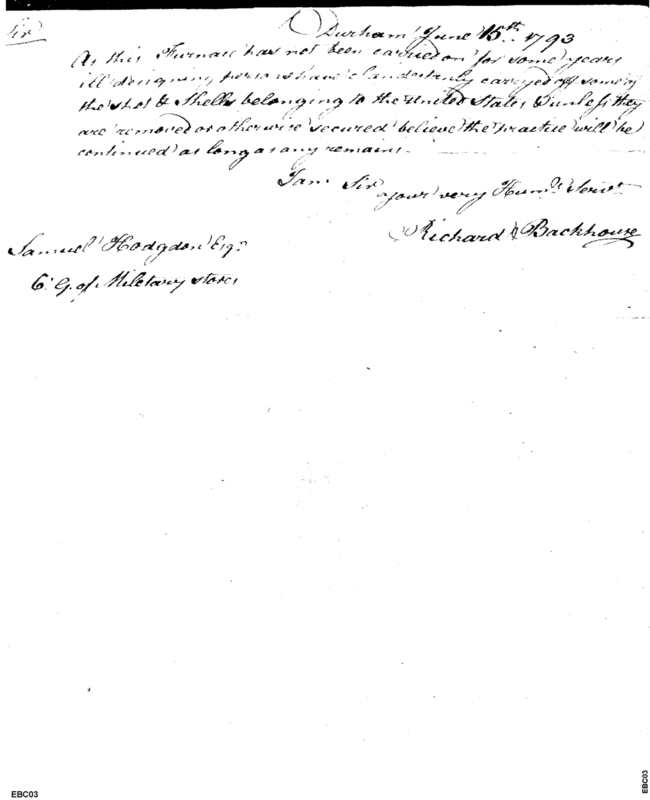 Durham June 15th. 1793
Sir
As this Furnace has not been carried on for some years
ill designing persons have clandestinly carryed off some of
the shot & Shells belonging to the United States & unless they
are removed or otherwise secured believe the practice will be
continued as long as any remains.
I am Sir
your very Humle. Servt.
Richard Backhouse
Samuel Hodgdon Esqr.
C. G. of Miletary stores
EBC03
EBC03